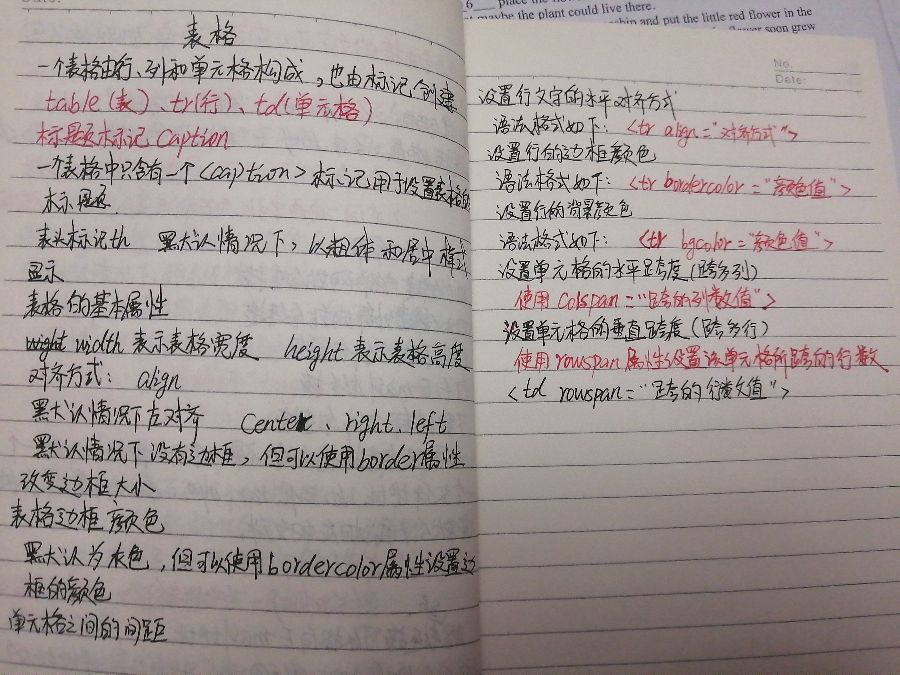 6 place the flower
t maybe the plant could live there.
bin and put the little red flower in the
flower soon grew
表格
一个表格由行、列和单元格构成，也由标记创建
table（表）、tr（行）、td（单元格）
标题标记 caption
一个表格中只含有一个<caption>标记用于设置表格的
标题.
表头标记th 默认情况下，以粗体和居中模式
显示
表格的基本属性
width 表示表格宽度 height 表示表格高度
对齐方式： align
默认情况下左对齐 Center、right、left
默认情况下没有边框，但可以使用border属性
改变边框大小
表格边框颜色
默认为灰色，但可以使用bordercolor属性设置边
框的颜色
单元格之间的间距
No.
Date:
设置行文字的水平对齐方式
语法格式如下： <tr align="对齐方式">
设置行的边框颜色
语法格式如下： <tr bordercolor="颜色值">
设置行的背景颜色
语法格式如下： <tr bgcolor="颜色值">
设置单元格的水平跨度（跨多列）
使用 Colspan="跨的列数值">
设置单元格的垂直跨度（跨多行）
使用rowspan属性设置该单元格所跨的行数
<td rowspan="跨的行数值">